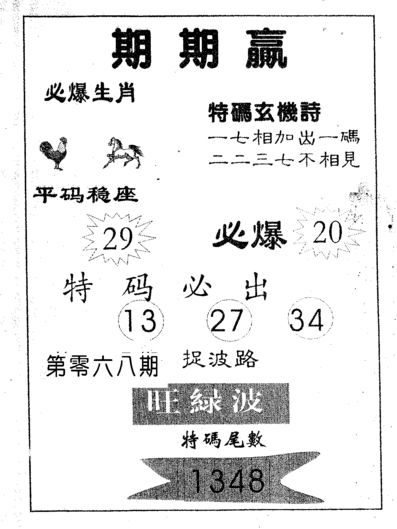 期期赢
必爆生肖
特碼玄機詩
一七相加出一碼
二二三七不相見
平码稳座
29
必爆 20
特码必出
13 27 34
第零六八期 捉波路
旺緑波
特碼尾數
1348